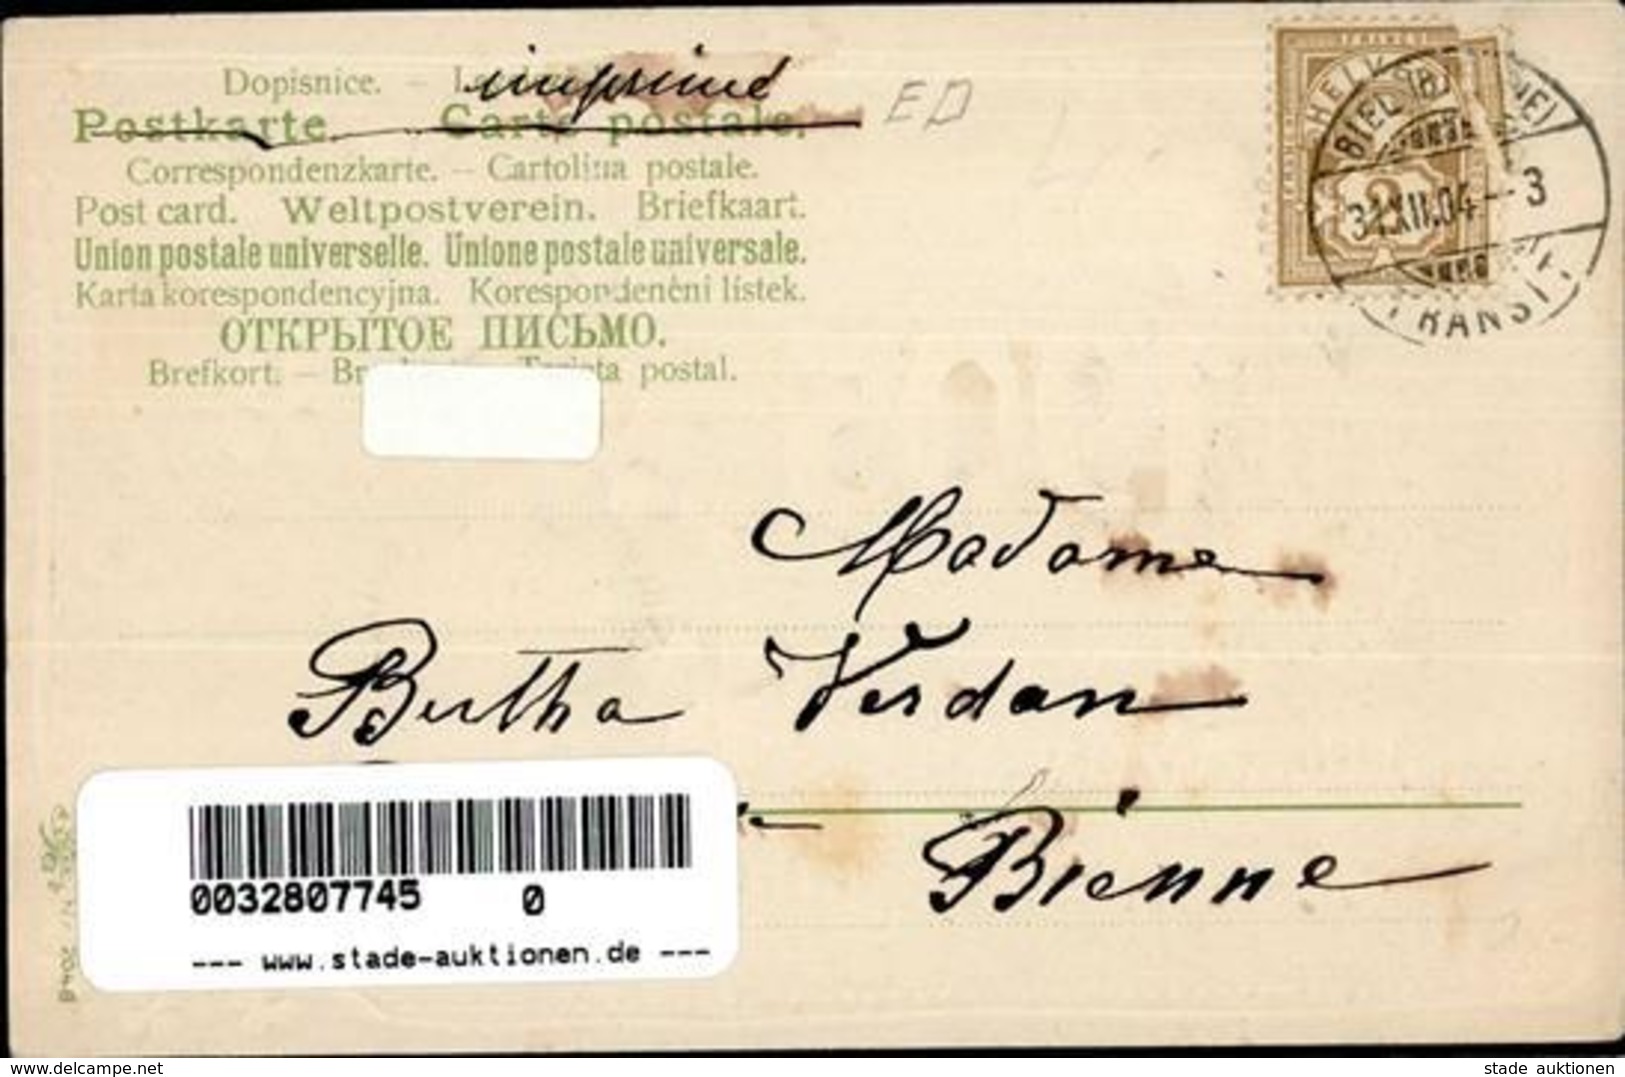 Dopisnice. –
imprimé
ED
Postkarte. Carte postale.
Correspondenzkarte. – Cartolina postale.
Post card. Weltpostverein. Briefkaart.
Union postale universelle. Unione postale universale.
Karta korespondencyjna. Korespondenční lístek.
ОТКРЫТОЕ ПИСЬМО.
Brefkort. – postal.
FRANCO
HELVETIA
2
BIEL (BIENNE)
31.XII.04.–3
TRANSIT.
Madame
Bertha Verdan
Bienne
0032807745 0
--- www.stade-auktionen.de ---
www.delcampe.net stade auktionen